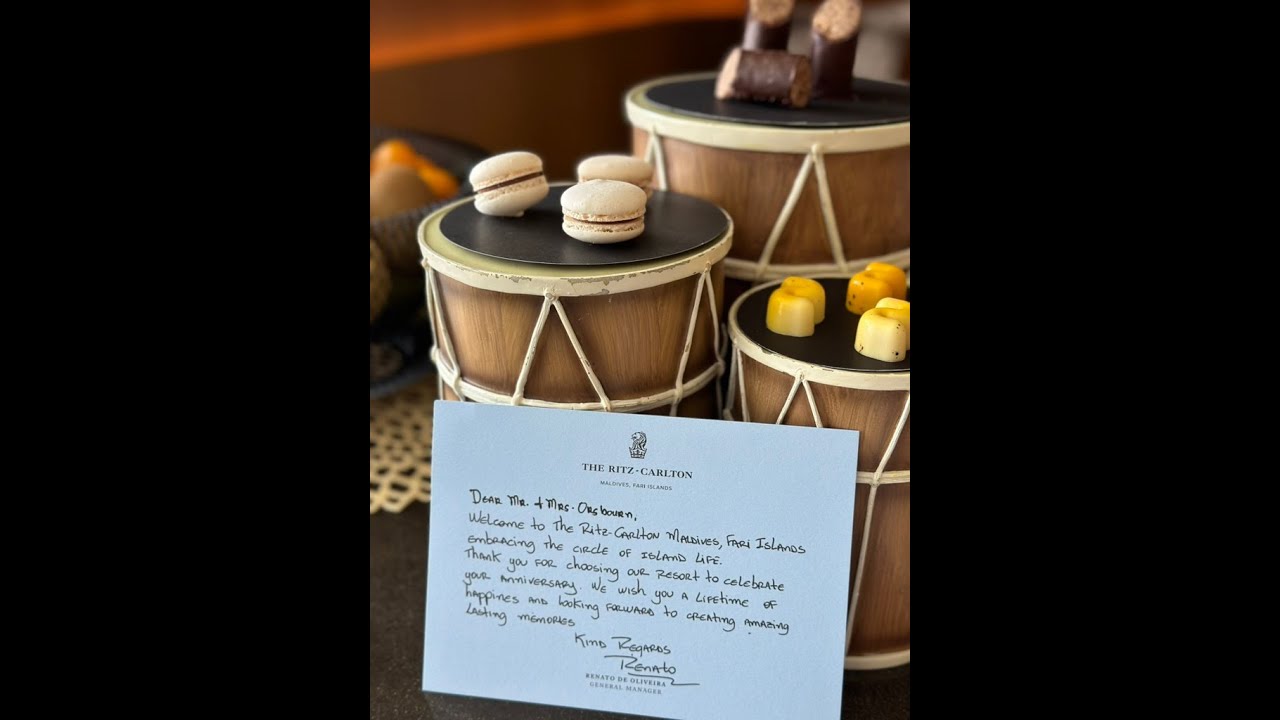 THE RITZ-CARLTON
MALDIVES, FARI ISLANDS
DEAR MR. & MRS. ORSBOURN,
WELCOME TO THE RITZ-CARLTON MALDIVES, FARI ISLANDS
EMBRACING THE CIRCLE OF ISLAND LIFE.
THANK YOU FOR CHOOSING OUR RESORT TO CELEBRATE
YOUR ANNIVERSARY. WE WISH YOU A LIFETIME OF
HAPPINES AND LOOKING FORWARD TO CREATING AMAZING
LASTING MEMORIES
KIND REGARDS
RENATO
RENATO DE OLIVEIRA
GENERAL MANAGER